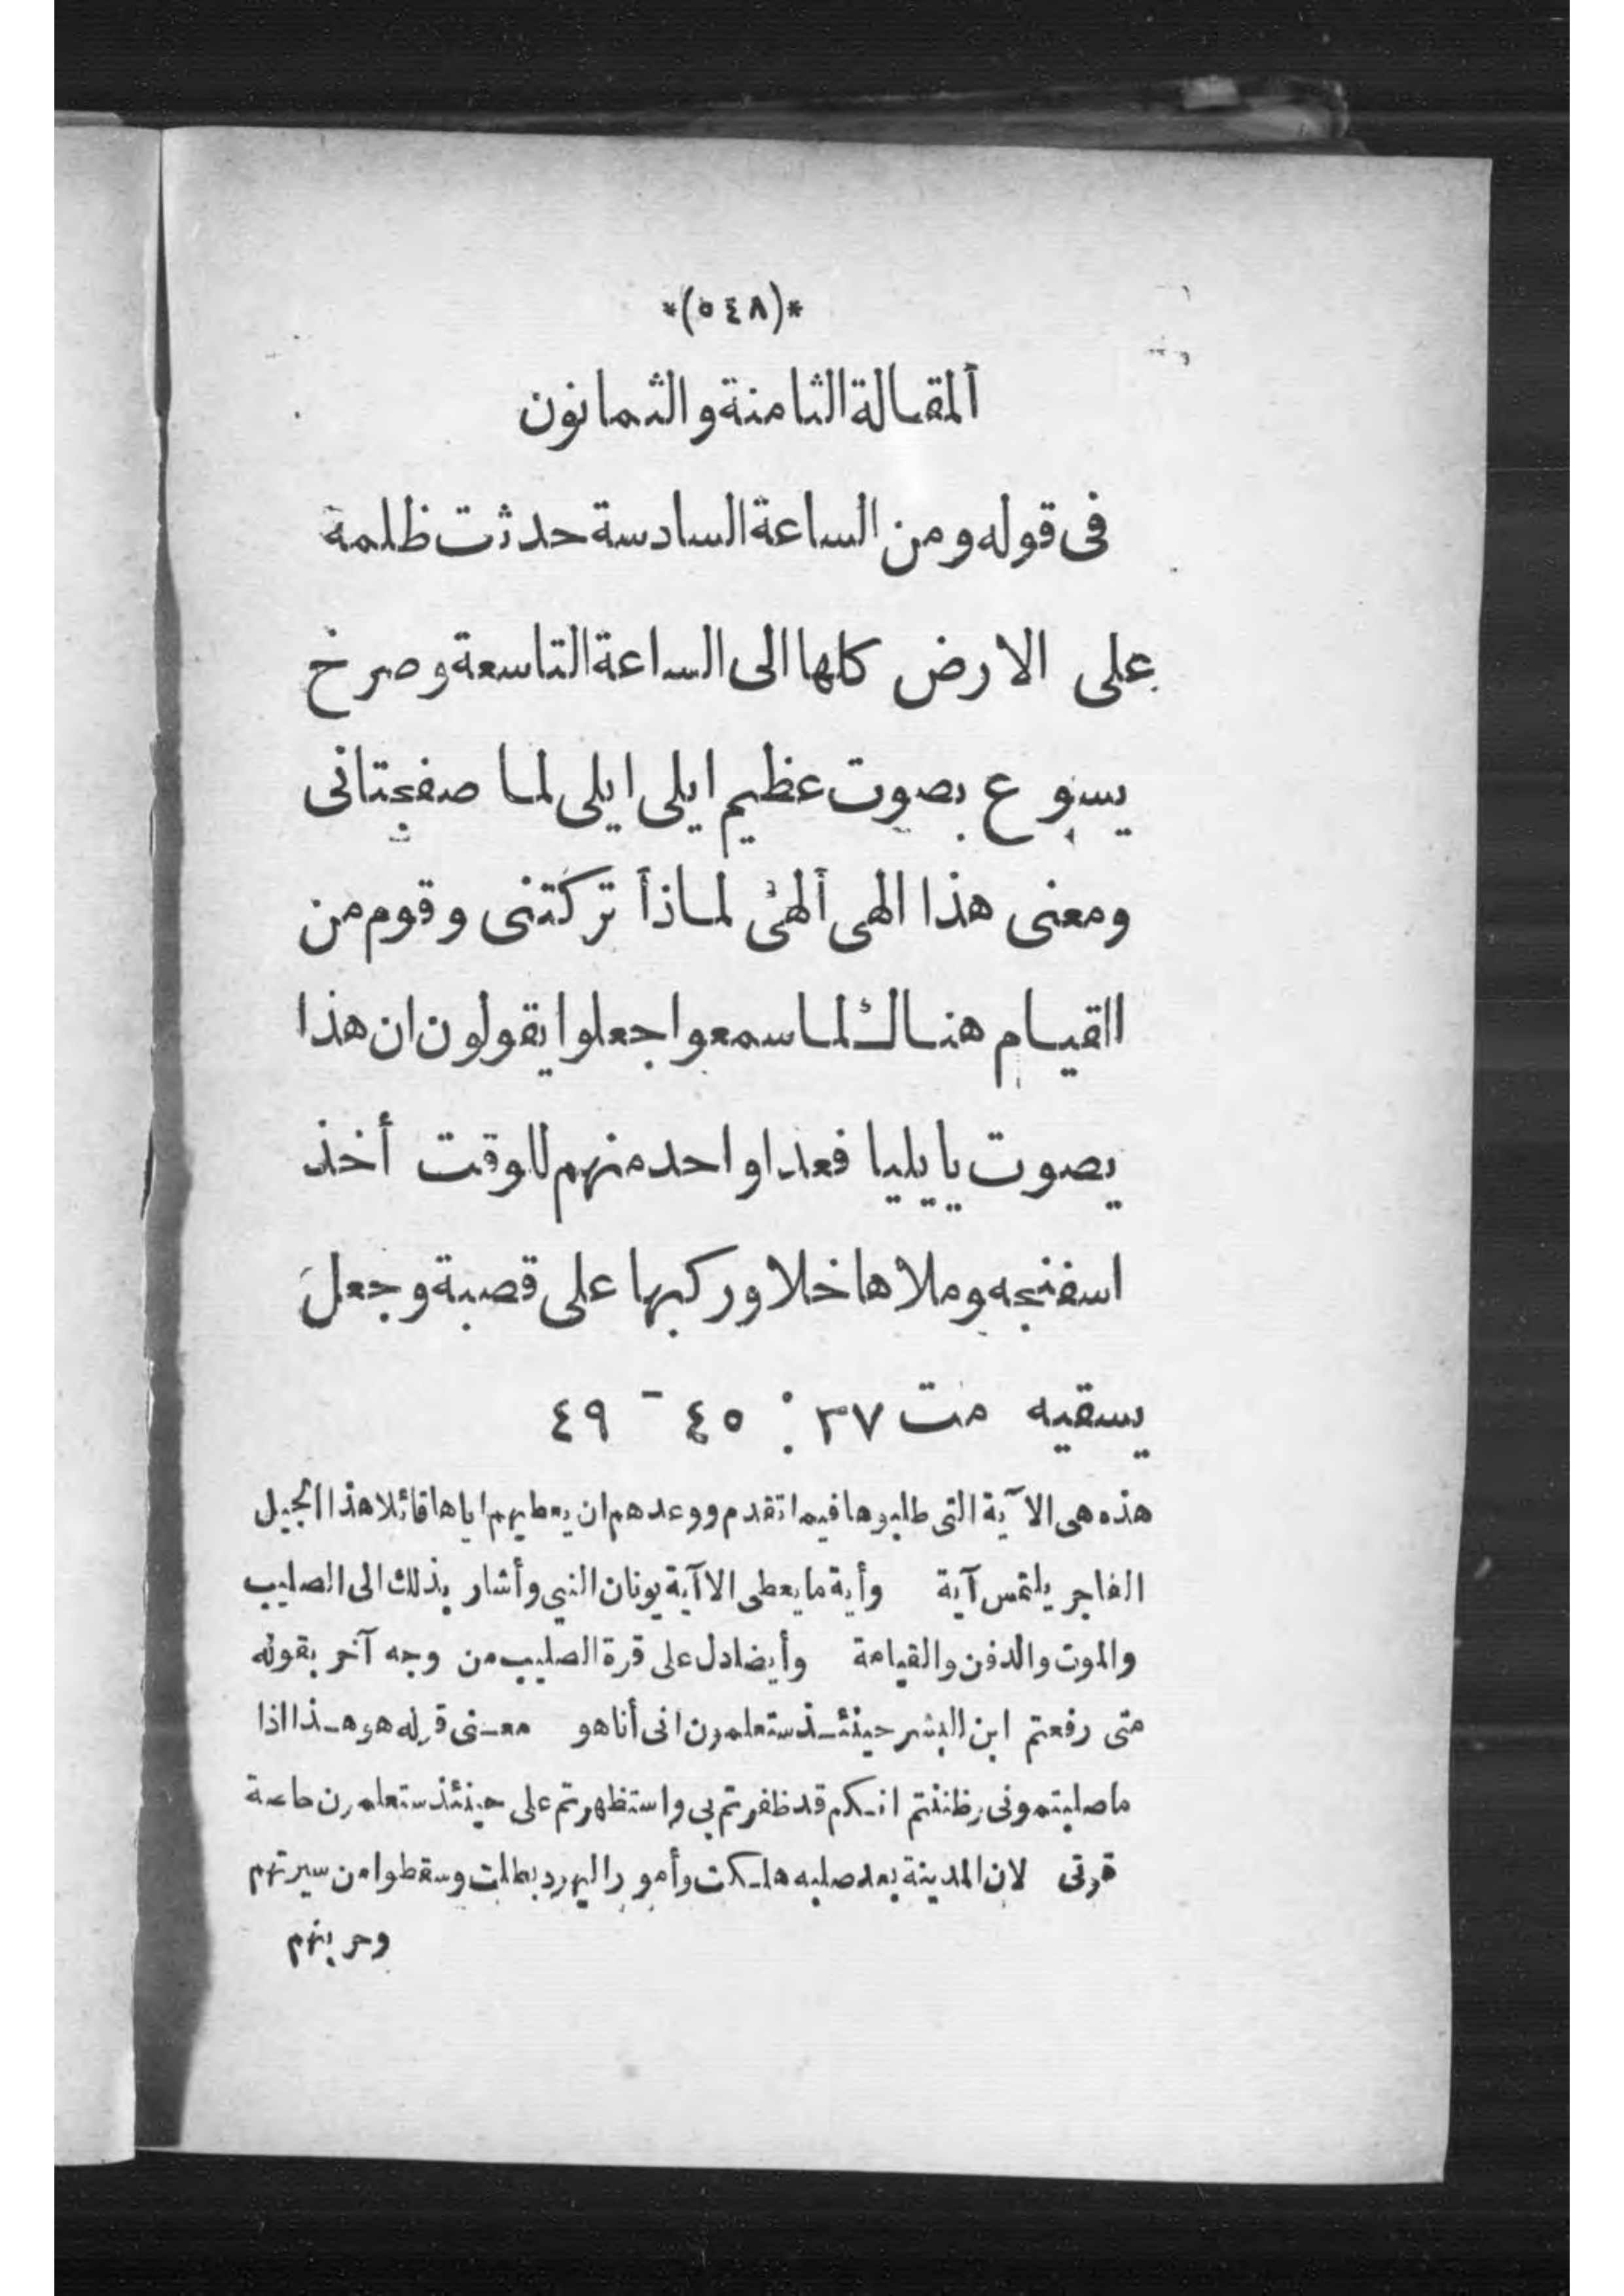 *(٥٤٨)*
ألمقالة الثامنة والثمانون
فى قوله ومن الساعة السادسة حدثت ظلمة
على الارض كلها الى الساعة التاسعة وصرخ
يسوع بصوت عظيم ايلى ايلى لما صفجتانى
ومعنى هذا الهى ألهى لماذأ تركتنى وقوم من
القيام هناك لما سمعوا جعلوا يقولون ان هذا
يصوت يا يليا فعدا واحد منهم للوقت أخذ
اسفنجه وملاها خلا وركبها على قصبة وجعل
يسقيه مت ٢٧ : ٤٥ - ٤٩
هذه هى الآية التى طلبوها فيما تقدم ووعدهم ان يعطيهم اياها قائلا هذا الجيل
الفاجر يلتمس آية وأية ما يعطى الا آية يونان النبي وأشار بذلك الى الصليب
والموت والدفن والقيامة وأيضا دل على قوة الصليب من وجه آخر بقوله
متى رفعتم ابن البشر حينئذ ستعلمون انى أنا هو معنى قوله هو هذا اذا
ما صلبتمونى وظننتم انكم قد ظفرتم بي واستظهرتم على حينئذ ستعلمون
قوتى لان المدينة بعد صلبه هلكت وأمور اليهود بطلت وسقطوا من سيرتهم
وحريتهم